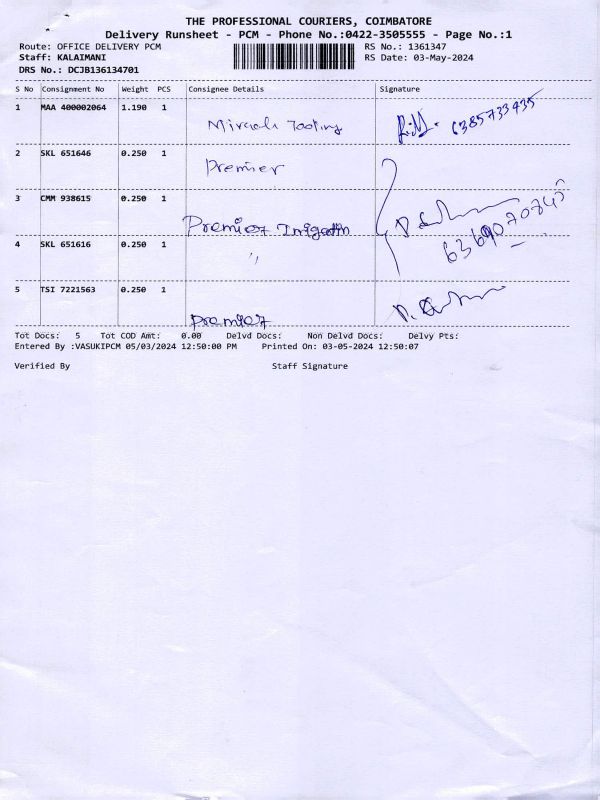 THE PROFESSIONAL COURIERS, COIMBATORE
Delivery Runsheet - PCM - Phone No.:0422-3505555 - Page No.:1
Route: OFFICE DELIVERY PCM RS No.: 1361347
Staff: KALAIMANI RS Date: 03-May-2024
DRS No.: DCJB136134701
S No Consignment No Weight PCS Consignee Details Signature
1 MAA 400002064 1.190 1
Miracle Tooling 6385733435
2 SKL 651646 0.250 1
Premier
3 CMM 938615 0.250 1
Premier Irrigation
4 SKL 651616 0.250 1
" 6369070845
5 TSI 7221563 0.250 1
Premier
Tot Docs: 5 Tot COD Amt: 0.00 Delvd Docs: Non Delvd Docs: Delvy Pts:
Entered By :VASUKIPCM 05/03/2024 12:50:00 PM Printed On: 03-05-2024 12:50:07
Verified By Staff Signature